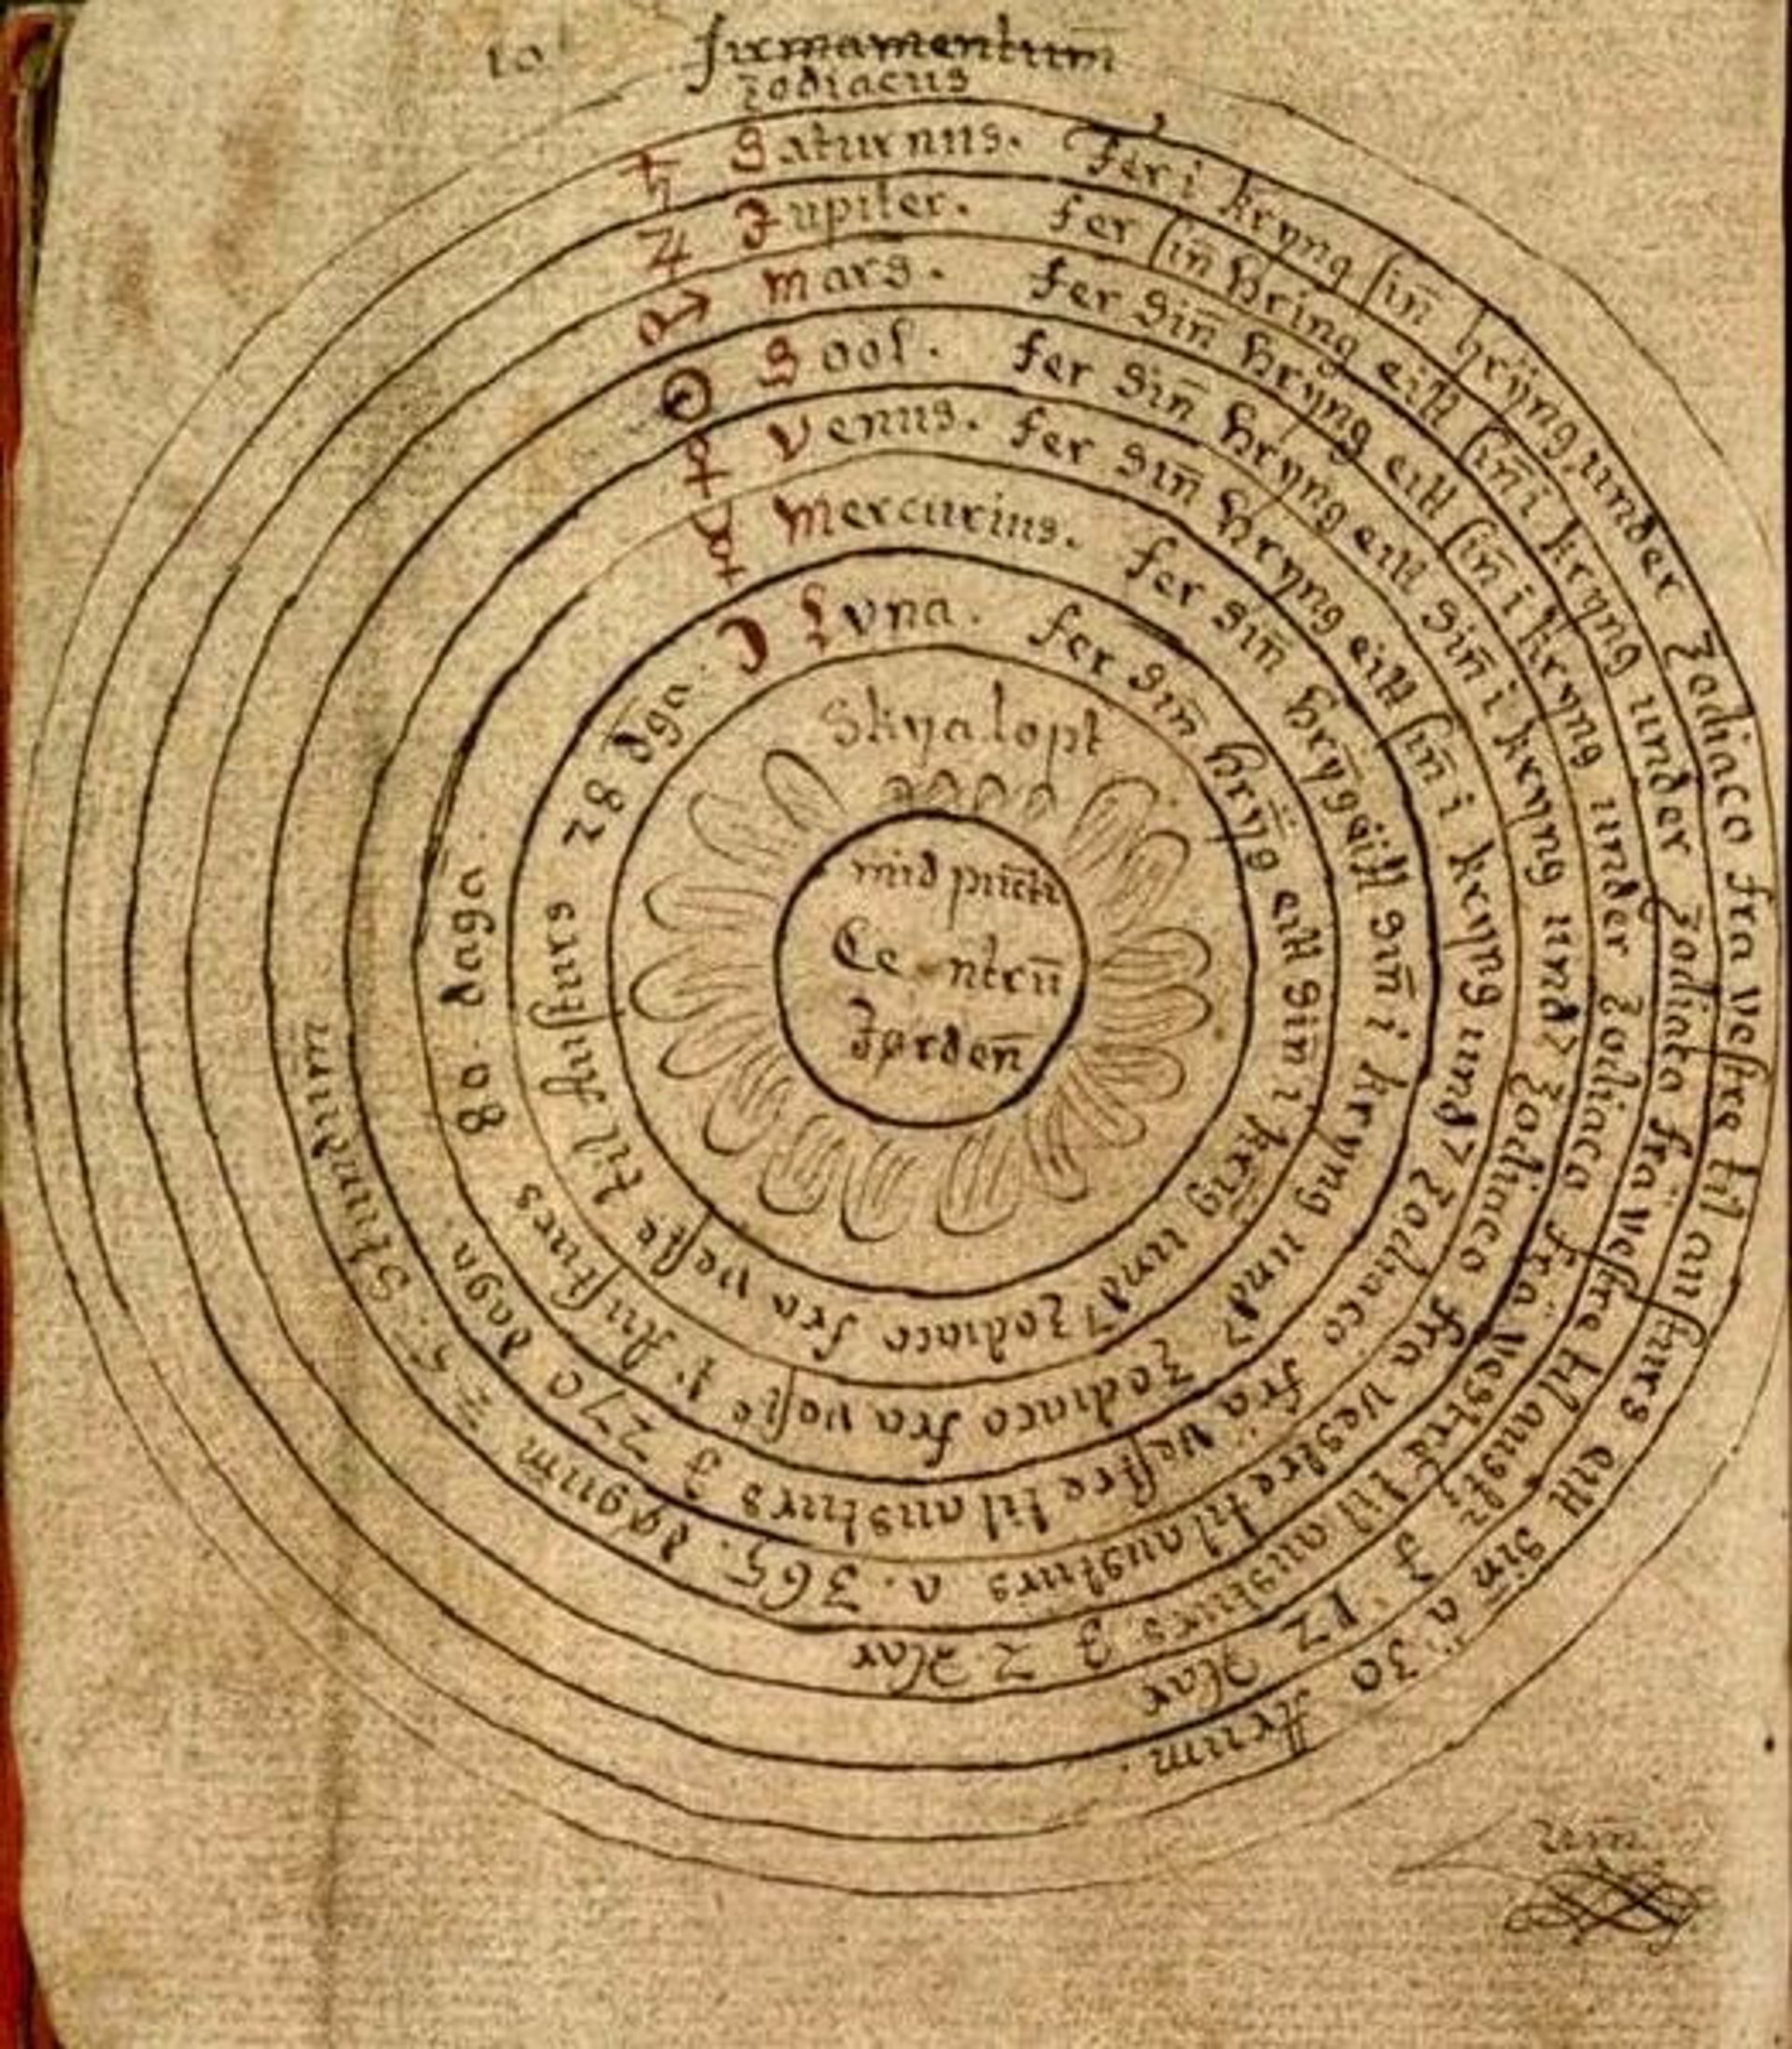 10
firmamentum
Zodiacus
♄ Saturnus. Fer i kryng sin̄ hrÿng, under Zodiaco fra vestre til austurs eill sin̄ a 30 Arum.
♃ Jupiter. fer sin̄ hring eitt sin̄ i kryng under Zodiaco fra vestre til austr̄ 3 12 Aar
♂ Mars. fer sin̄ hryng eitt sin̄ i kryng under Zodiaco fra vestre til austurs 3 2 Aar
☉ Sool. fer sin̄ hryng eitt sin̄ i kryng und7 Zodiaco fra vestre til austurs a. 365. døgum z 5. Stundum
♀ Venus. fer sin̄ hryng eitt sin̄ i kryng und7 Zodiaco fra vestre til austurs 3 270 daga.
☿ Mercurius. fer sin̄ hrȳg eitt sin̄ i kryng und7 Zodiaco fra veste Austurs 80. daga.
☽ Luna. fer sin̄ hrȳg eitt sin̄ i krīg und7 Zodiaco fra veste til Austurs 28 dḡa.
Skya lopt
mid punct
Centrū
Jørden̄
um̄